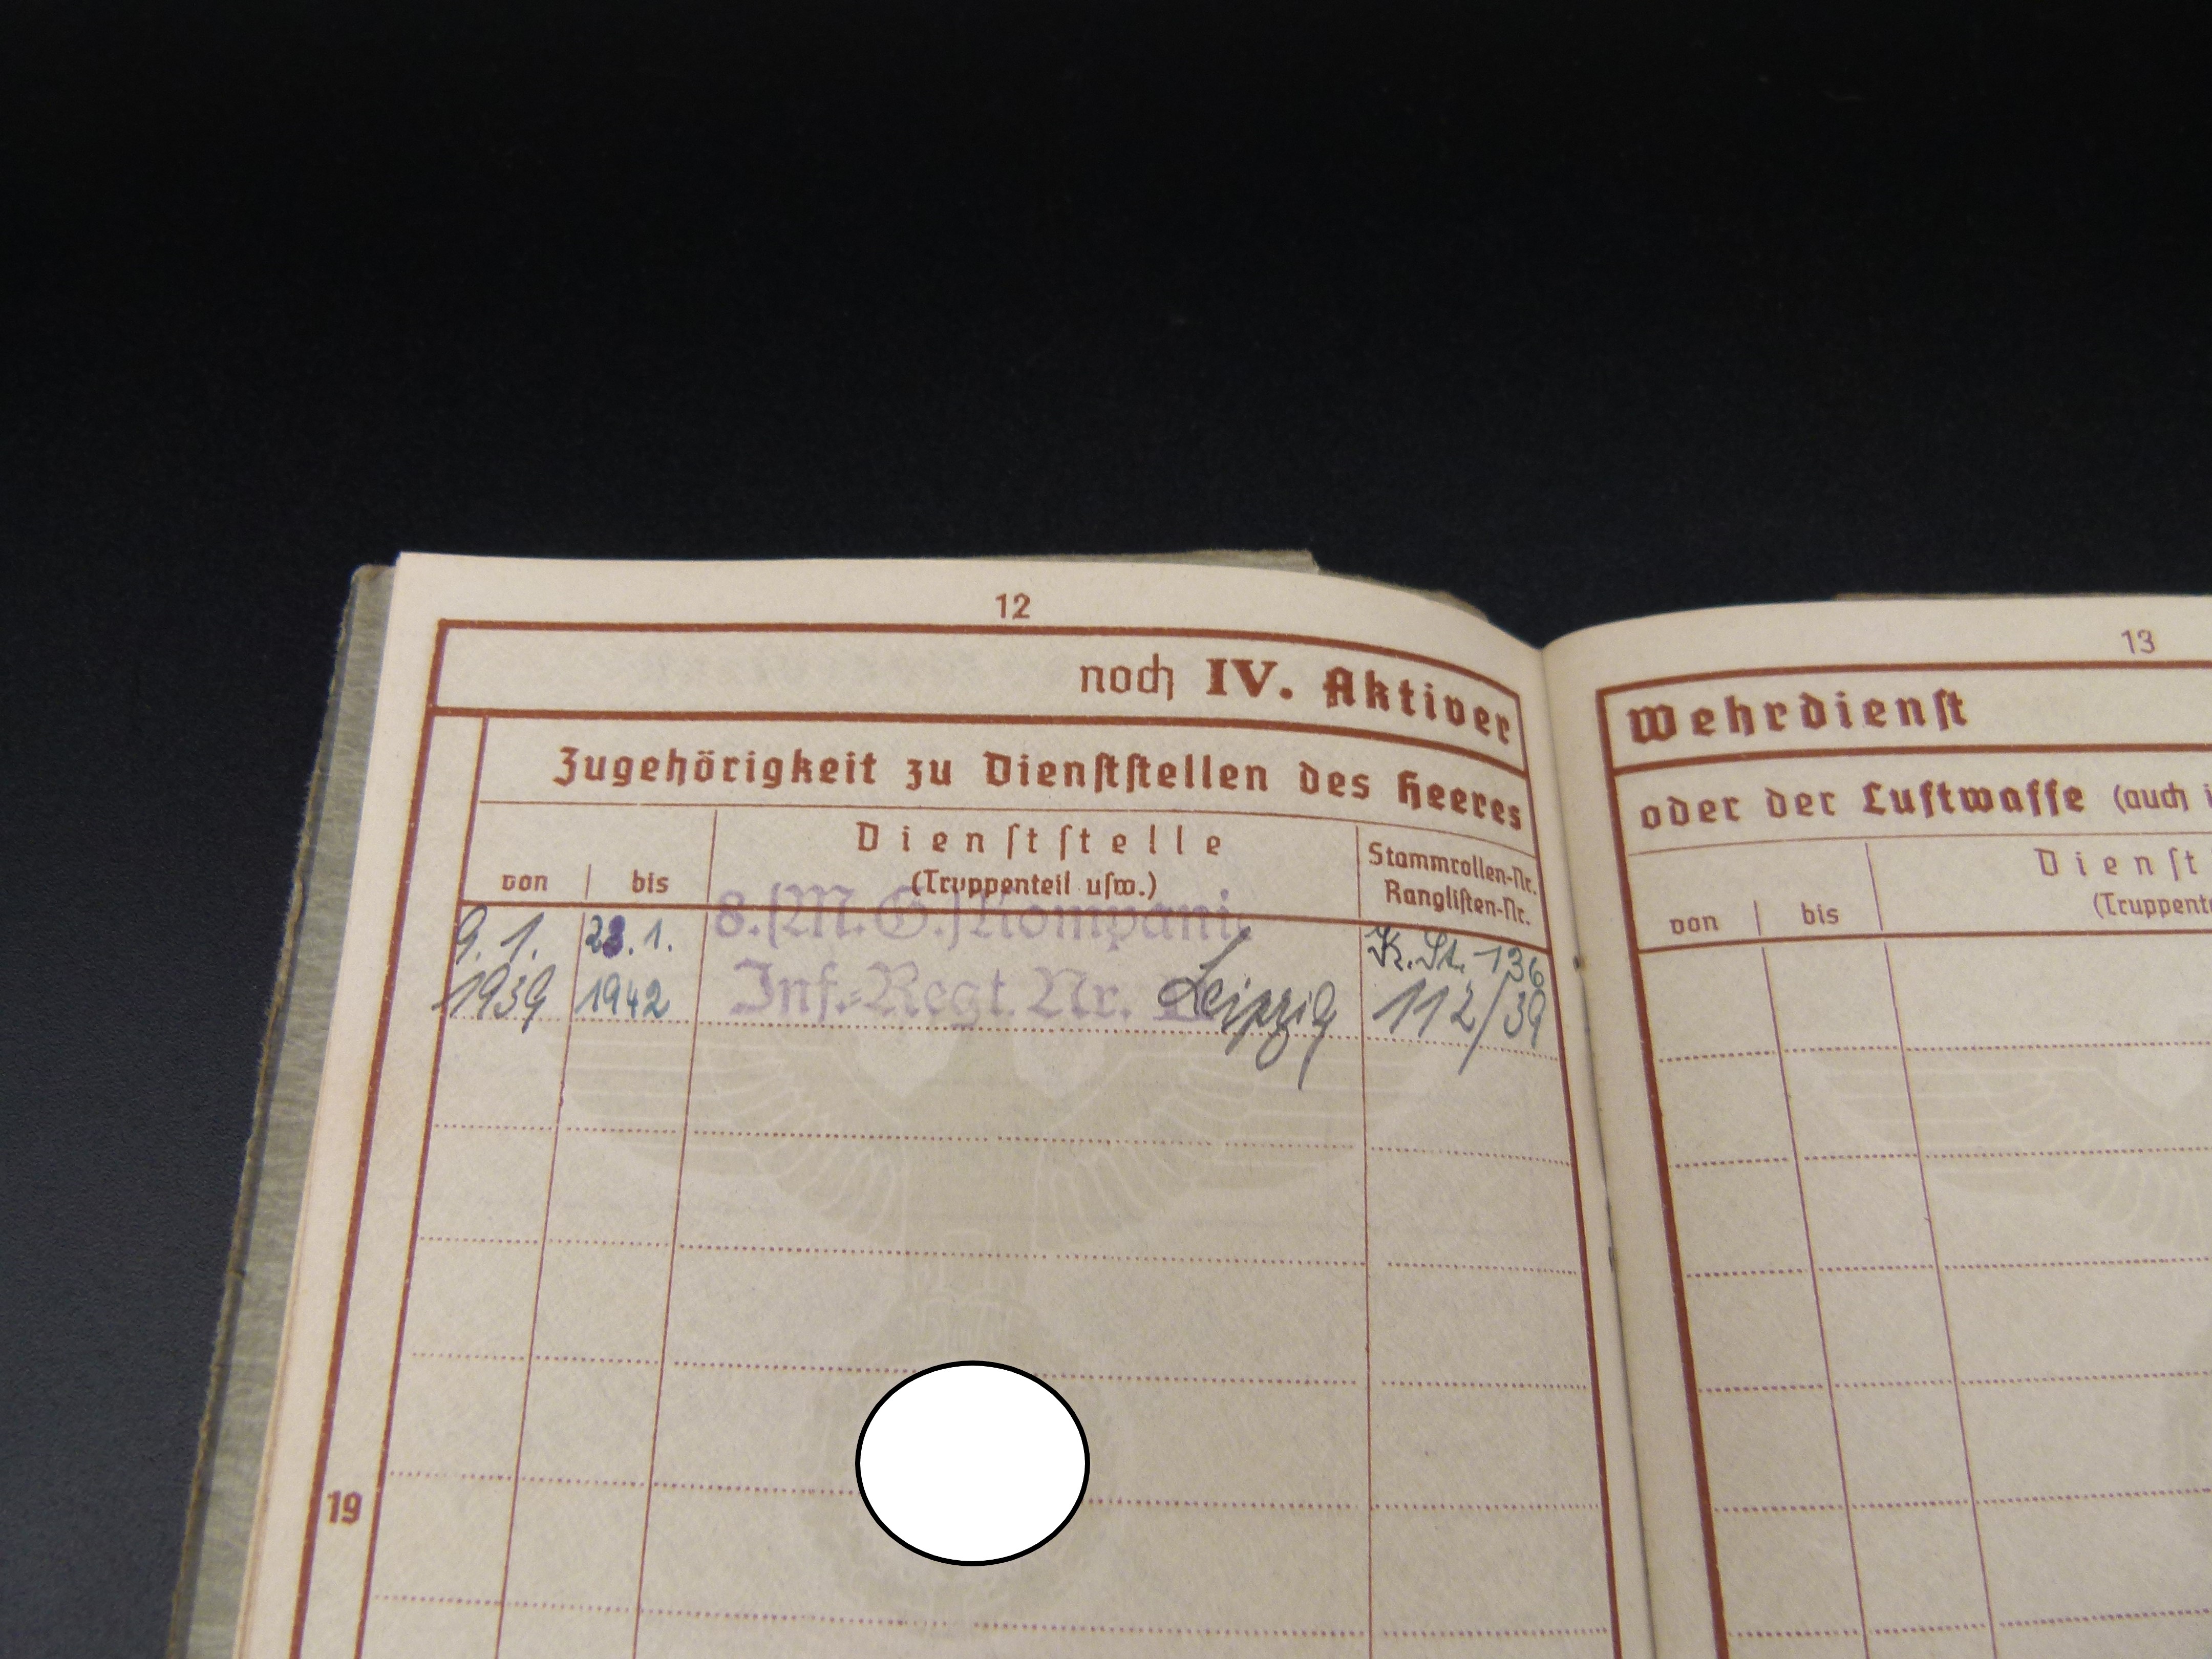 12
noch IV. Aktiver
Zugehörigkeit zu Dienſtſtellen des Heeres
von bis Dienſtſtelle (Truppenteil uſw.) Stammrollen-Nr. Rangliſten-Nr.
8. (M.G.) Kompani
9. 1. 1939
28. 1. 1942
Inf.-Regt. Nr. Leipzig
K. St. 136
112/39
19
13
Wehrdienſt
oder der Luftwaffe (auch
von bis Dienſt
(Truppent